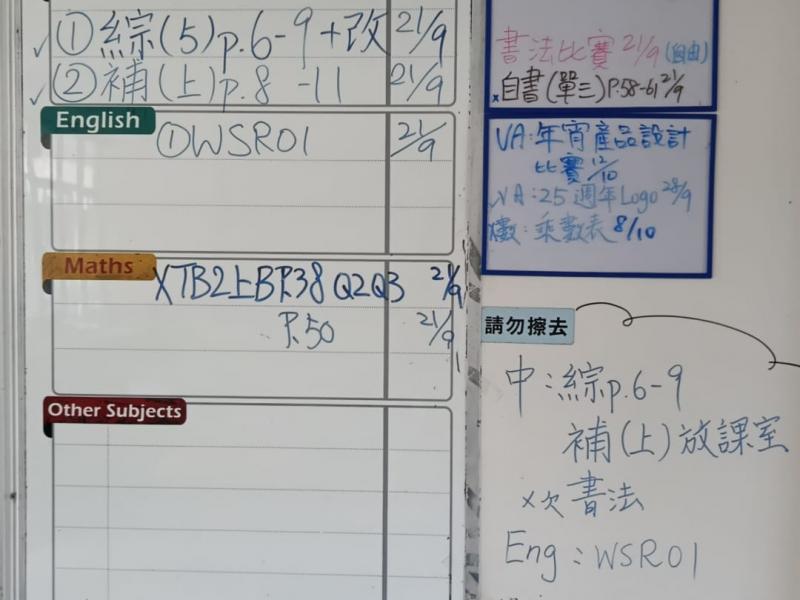 ①綜(5)p.6-9+改 21/9
②補(上)p.8-11 21/9
English
①WSR01 21/9
Maths
XTB2上BP.38 Q2Q3 21/9
P.50 21/9
Other Subjects
書法比賽 21/9 (自由)
x自書(單三)P.58-61 21/9
VA:年宵產品設計
比賽 12/10
VA:25週年Logo 28/9
數:乘數表 8/10
請勿擦去
中:綜p.6-9
補(上)放課室
x欠書法
Eng:WSR01